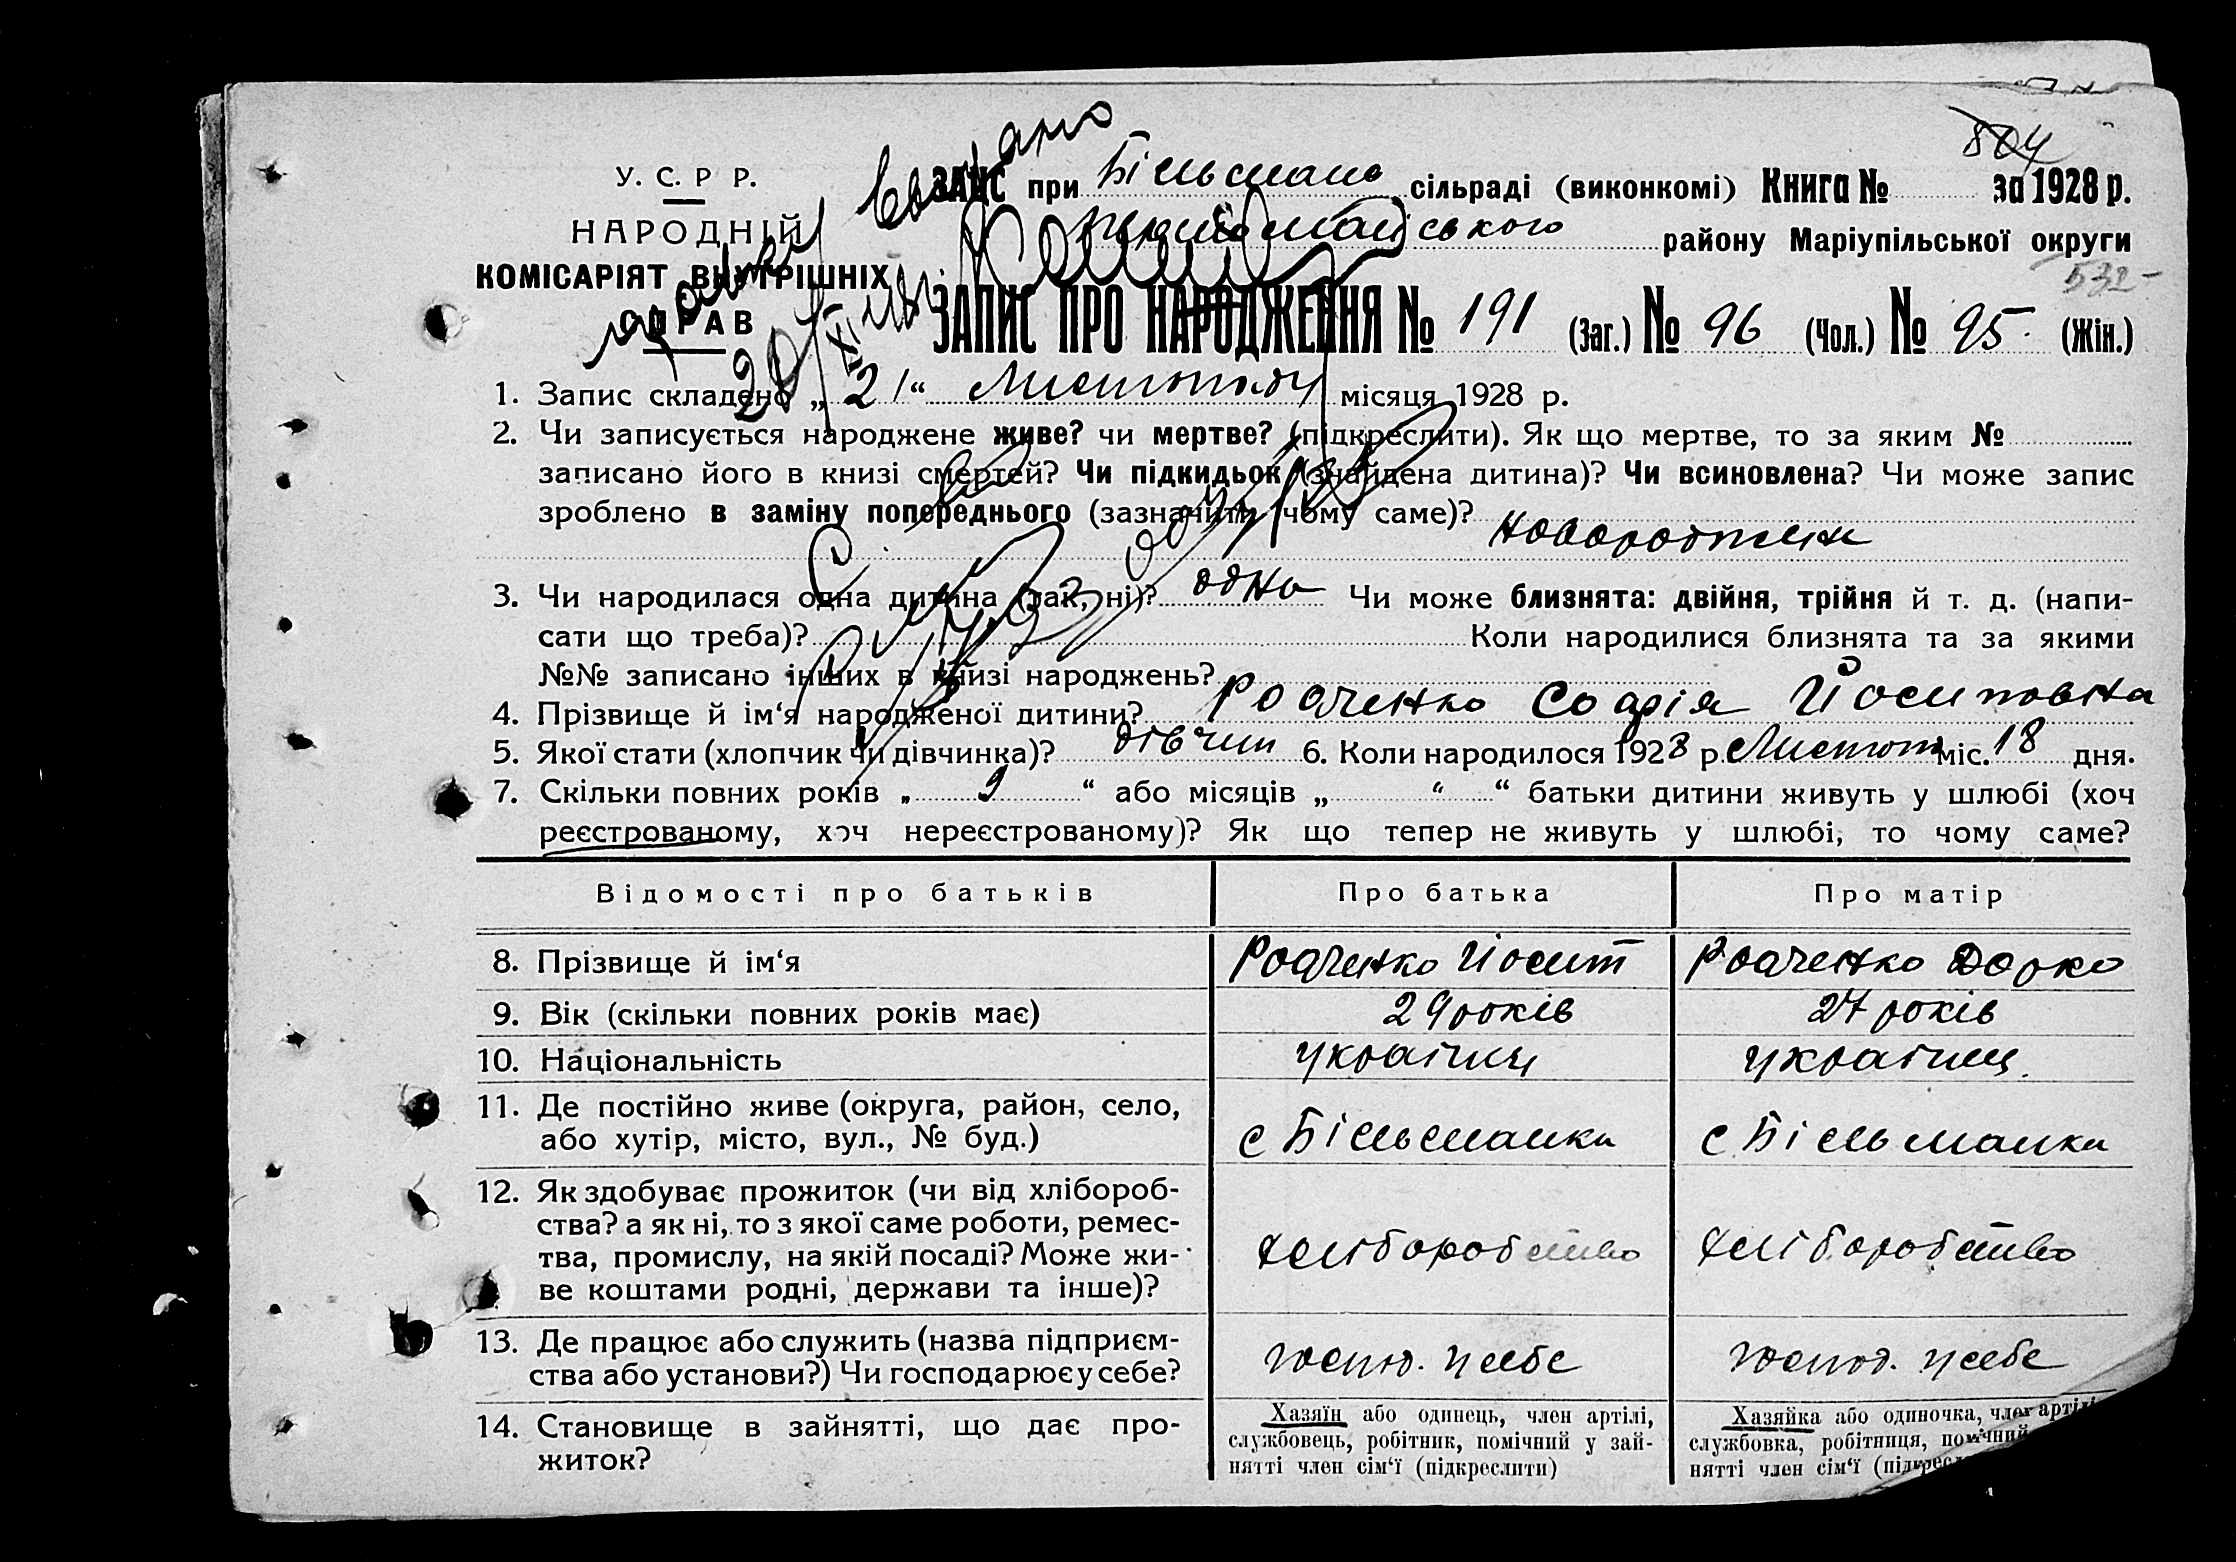 804
У. С. Р Р.
НАРОДНІЙ
КОМІСАРІЯТ ВНУТРІШНІХ
СПРАВ
ЗАГС при Більмань сільраді (виконкомі) Книга № за 1928 р.
першомайського району Маріупільської округи
532-
ЗАПИС ПРО НАРОДЖЕННЯ № 191 (Заг.) № 96 (Чол.) № 95 (Жін.)
1. Запис складено „ 21 “ Листопаду місяця 1928 р.
2. Чи записується народжене живе? чи мертве? (підкреслити). Як що мертве, то за яким №
записано його в книзі смертей? Чи підкидьок (знайдена дитина)? Чи всиновлена? Чи може запис
зроблено в заміну попереднього (зазначити чому саме)?
3. Чи народилася одна дитина (так, ні)? одна Чи може близнята: двійня, трійня й т. д. (напи-
сати що треба)? Коли народилися близнята та за якими
№№ записано інших в книзі народжень?
4. Прізвище й ім‘я народженої дитини? Радченко Софія Йосиповна
5. Якої стати (хлопчик чи дівчинка)? дівчин 6. Коли народилося 1928 р. Листоп міс. 18 дня.
7. Скільки повних років „ 9 “ або місяців „ “ “ батьки дитини живуть у шлюбі (хоч
реєстрованому, хоч нереєстрованому)? Як що тепер не живуть у шлюбі, то чому саме?
Відомості про батьків Про батька Про матір
8. Прізвище й ім‘я Радченко Йосип Радченко Дарка
9. Вік (скільки повних років має) 29 років 27 років
10. Національність україни україни
11. Де постійно живе (округа, район, село,
або хутір, місто, вул., № буд.) с Більманка с Більманка
12. Як здобуває прожиток (чи від хлібороб-
ства? а як ні, то з якої саме роботи, ремес-
тва, промислу, на якій посаді? Може жи-
ве коштами родні, держави та інше)? хліборобство хліборобство
13. Де працює або служить (назва підприєм-
ства або установи?) Чи господарює у себе? госпо. у себе господ. у себе
14. Становище в зайнятті, що дає про-
житок?
Хазяїн або одинець, член артілі,
службовець, робітник, помічний у зай-
нятті член сім‘ї (підкреслити)
Хазяйка або одиночка, член артілі
службовка, робітниця, помічний
нятті член сім‘ї